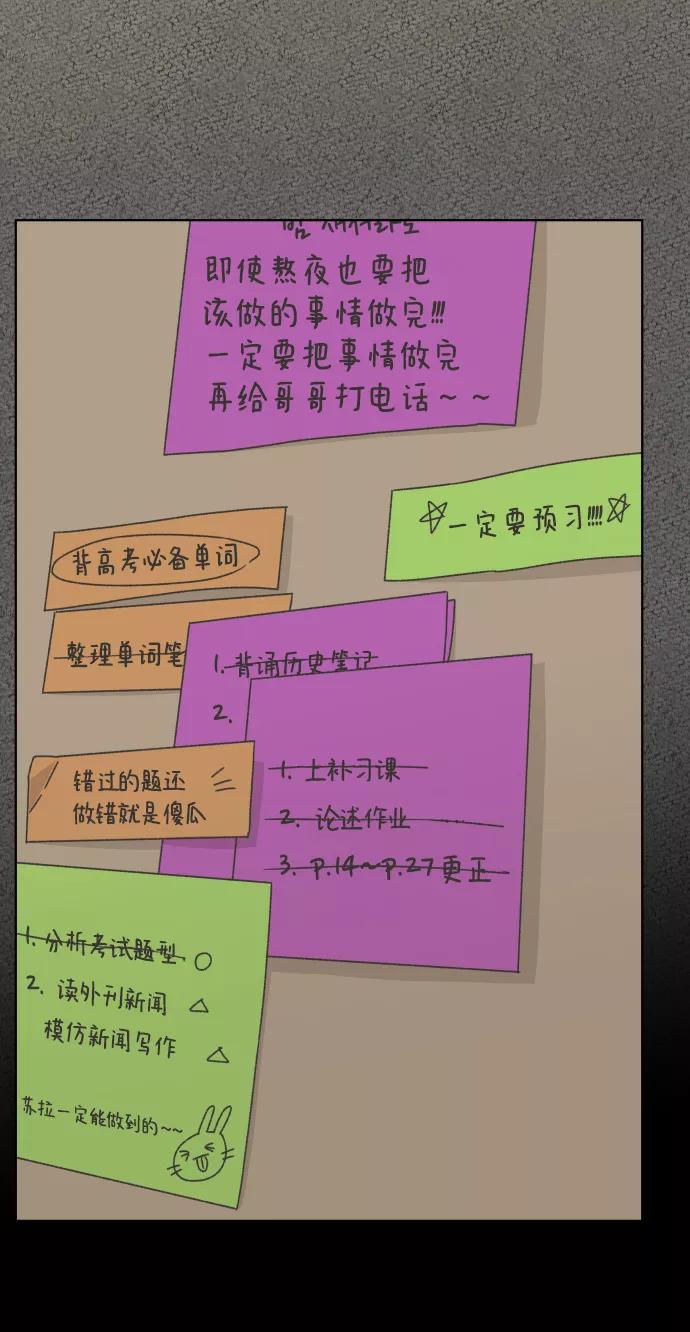 即使熬夜也要把
该做的事情做完!!!
一定要把事情做完
再给哥哥打电话～～
☆一定要预习!!!!☆
背高考必备单词
整理单词笔
1.背诵历史笔记
2.
错过的题还
做错就是傻瓜
1.上补习课
2.论述作业
3.P.14~P.27更正
1.分析考试题型 ○
2.读外刊新闻 △
模仿新闻写作 △
苏拉一定能做到的~~